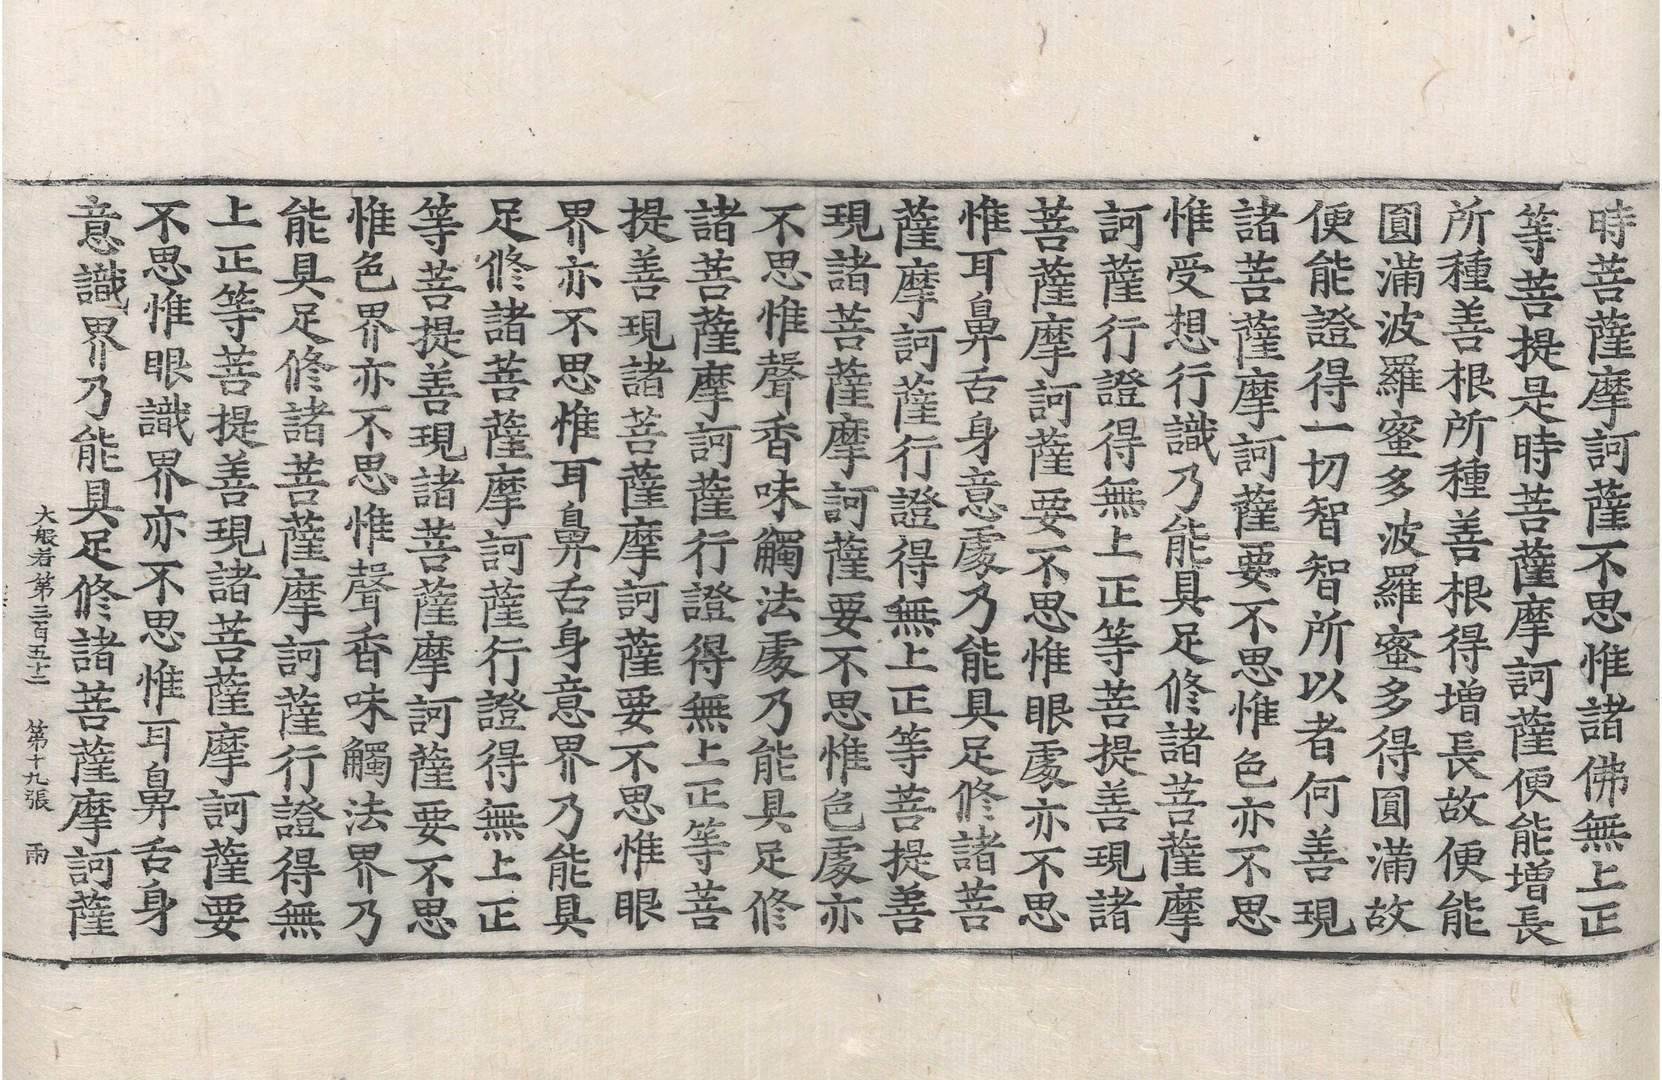 時菩薩摩訶薩不思惟諸佛無上正
等菩提是時菩薩摩訶薩便能增長
所種善根所種善根得增長故便能
圓滿波羅蜜多波羅蜜多得圓滿故
便能證得一切智智所以者何善現
諸菩薩摩訶薩要不思惟色亦不思
惟受想行識乃能具足修諸菩薩摩
訶薩行證得無上正等菩提善現諸
菩薩摩訶薩要不思惟眼處亦不思
惟耳鼻舌身意處乃能具足修諸菩
薩摩訶薩行證得無上正等菩提善
現諸菩薩摩訶薩要不思惟色處亦
不思惟聲香味觸法處乃能具足修
諸菩薩摩訶薩行證得無上正等菩
提善現諸菩薩摩訶薩要不思惟眼
界亦不思惟耳鼻舌身意界乃能具
足修諸菩薩摩訶薩行證得無上正
等菩提善現諸菩薩摩訶薩要不思
惟色界亦不思惟聲香味觸法界乃
能具足修諸菩薩摩訶薩行證得無
上正等菩提善現諸菩薩摩訶薩要
不思惟眼識界亦不思惟耳鼻舌身
意識界乃能具足修諸菩薩摩訶薩
大般若第三百五十二 第十九張 雨